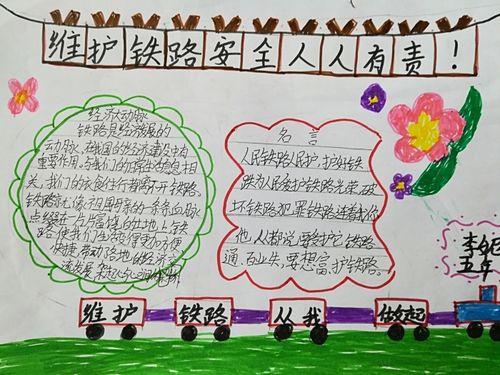 维护铁路安全人人有责！
经济大动脉
铁路是经济发展的
大动脉，在我国的经济建设中有
重要作用，与我们的日常生活息息相
关，我们的衣食住行都离不开铁路。
铁路就像祖国母亲的一条条血脉
点缀在一片片富饶的土地上，铁
路使我们生活变得更加方便
快捷，带动了各地的经济
名言
人民铁路人民护，护好铁
铁为人民爱护铁路光荣，破
坏铁路犯罪铁路连着你
他，人人都说要爱护它铁路
通，百业兴，要想富，护铁路。
维护 铁路 从我 做起
李
五年